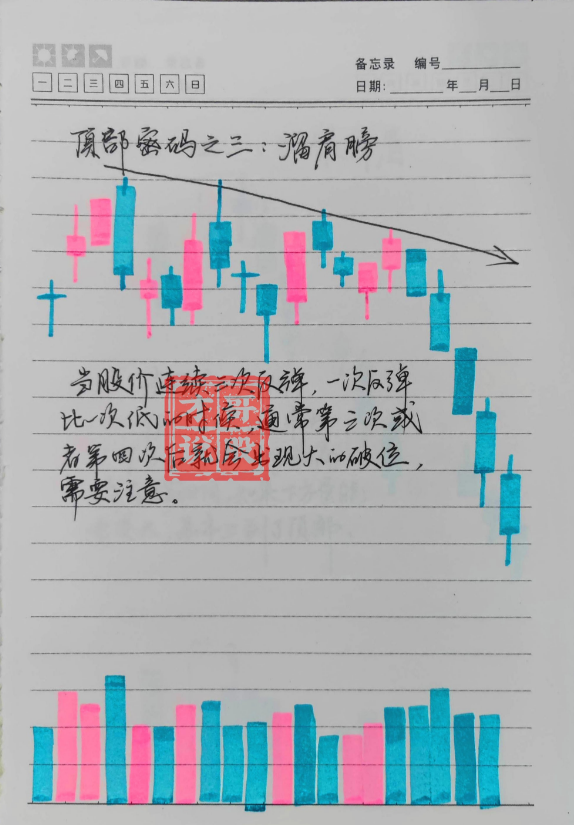 备忘录 编号
一 二 三 四 五 六 日
日期: 年 月 日
顶部密码之三:溜肩膀
当股价连续三次反弹,一次反弹
比一次低的时候,通常第三次或
者第四次后就会出现大的破位,
需要注意。